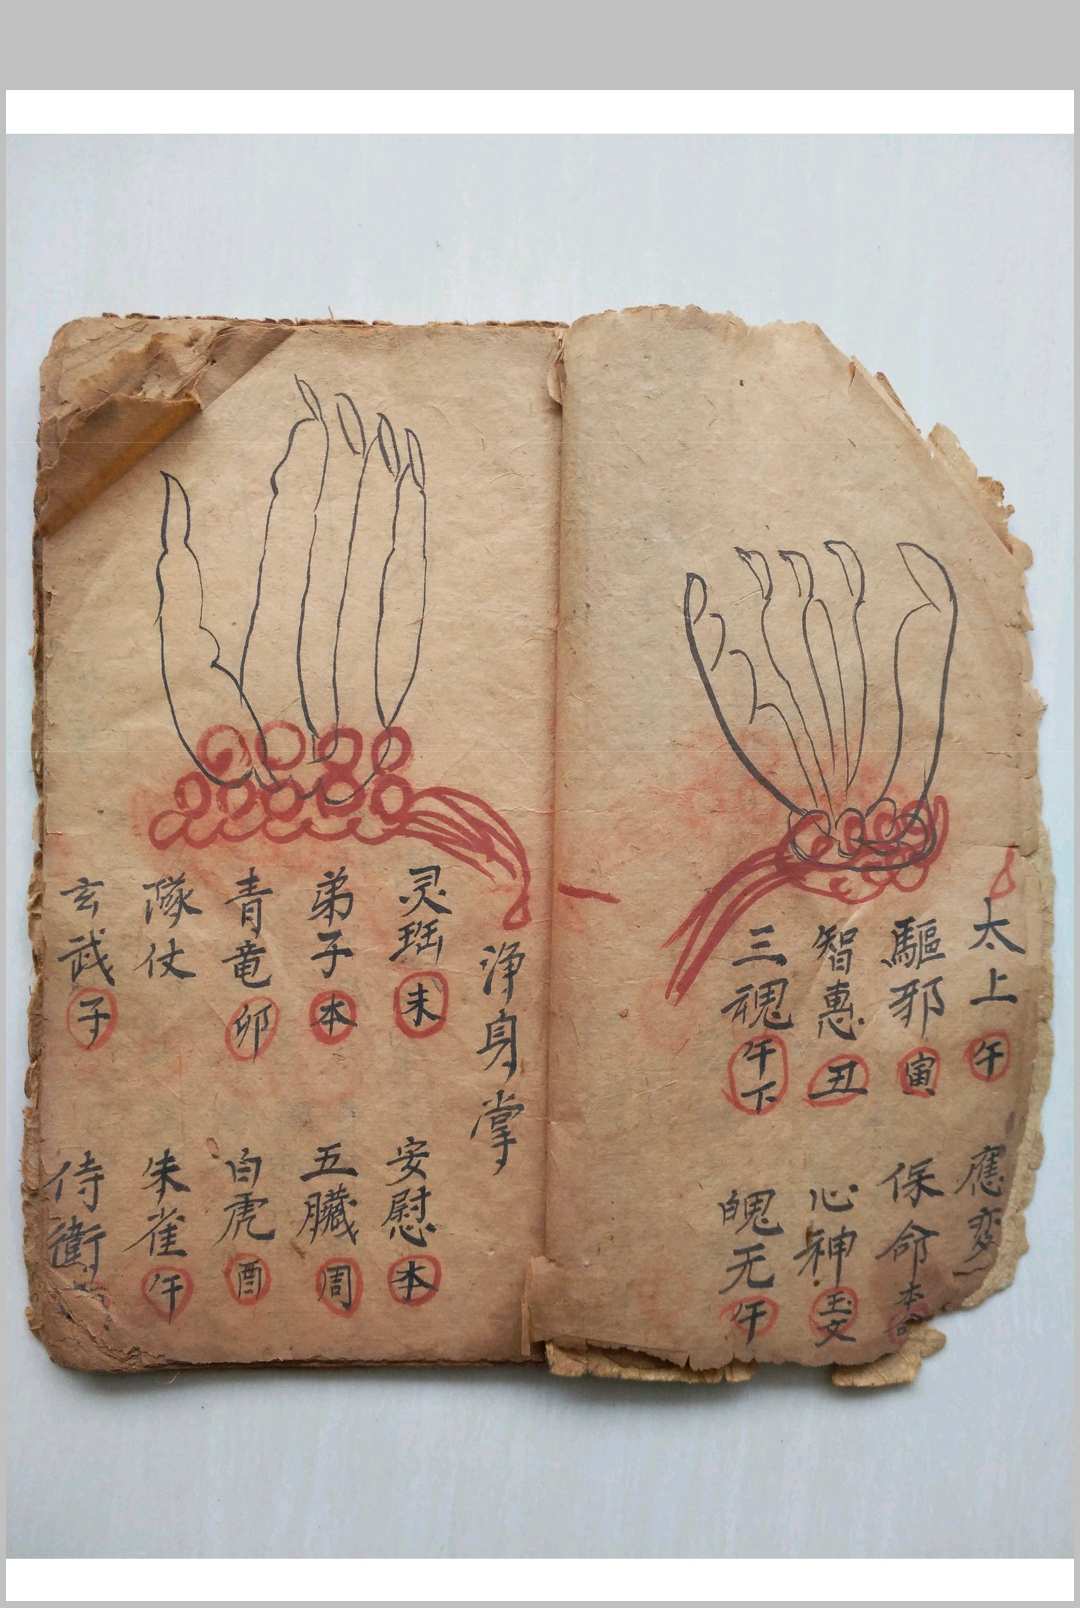 太上午 應变
驅邪寅 保命本
智惠丑 心神玉文
三魂午下 魄无午
浄身掌
灵珤未 安慰本
弟子本 五臟周
青竜卯 白虎酉
隊仗 朱雀午
玄武子 侍衛